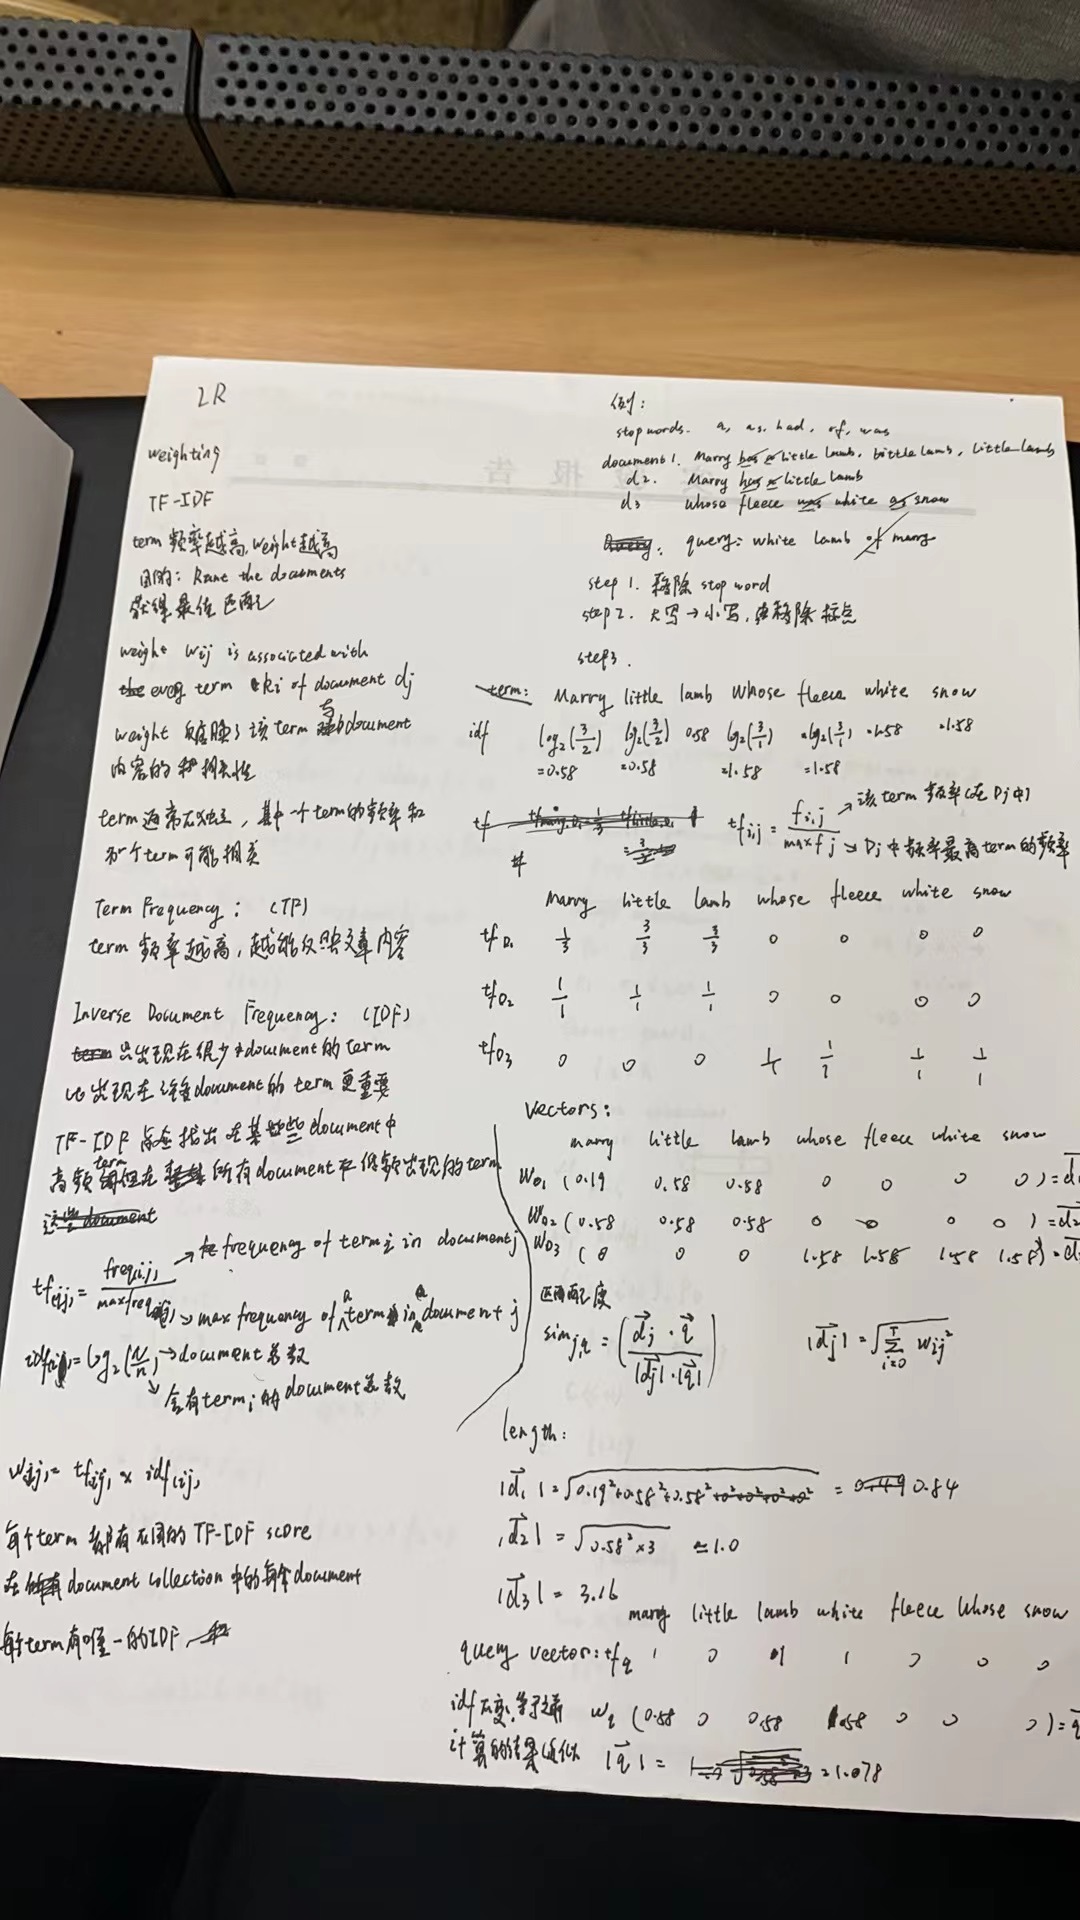 IR
weighting
TF-IDF
term 频率越高, weight越高
目的: Rank the documents
获得最佳匹配
weight wij is associated with
every term ki of document dj
weight 反映了该term与document
内容的相关性
term通常不独立, 其中一个term的频率和
另一个term可能相关
Term Frequency: (TF)
term 频率越高, 越能反映文章内容
Inverse Document Frequency: (IDF)
只出现在很少document的term
比出现在许多document的term更重要
TF-IDF 旨在找出在某些document中
高频term但在所有document不低频出现的term
tf(i,j) = freq(i,j) / maxfreq(i,j)
→ frequency of term i in document j
→ max frequency of a term in a document j
idf(i,j) = log₂(N/n) → document总数
↘ 含有term i 的document总数
w(i,j) = tf(i,j) × idf(i,j)
每个term 都有不同的 TF-IDF score
在document collection 中的每个document
每个term有唯一的IDF
例:
stopwords. a, as, had, of, was
document 1. Marry has a little lamb, little lamb, little lamb
d2. Marry has a little lamb
d3 whose fleece was white as snow
query: white lamb of marry
step 1. 移除 stop word
step 2. 大写→小写, 移除标点
step3.
term: Marry little lamb whose fleece white snow
idf log₂(3/2) log₂(3/2) 0.58 log₂(3/1) =log₂(3/1) =1.58 =1.58
=0.58 =0.58 =1.58 =1.58
tf tfi,j = fi,j / maxfj
→ 该term频率(在Dj中)
→ Dj中频率最高term的频率
Marry little lamb whose fleece white snow
tfD1 1/3 3/3 3/3 0 0 0 0
tfD2 1/1 1/1 1/1 0 0 0 0
tfD3 0 0 0 1/1 1/1 1/1
Vectors:
marry little lamb whose fleece white snow
WD1 (0.19 0.58 0.58 0 0 0 0) = d
WD2 (0.58 0.58 0.58 0 0 0 0) = d2
WD3 (0 0 0 1.58 1.58 1.58 1.58) = d
匹配度
simj,q = (dj · q / |dj| · |q|) |dj| = √(Σ wij²)
length:
|d1| = √(0.19²+0.58²+0.58²+0²+0²+0²+0²) = 0.84
|d2| = √(0.58²×3) ≈1.0
|d3| = 3.16
marry little lamb white fleece whose snow
query vector: tfq 1 0 1 1 0 0 0
idf不变, 等于之前 wq (0.58 0 0.58 1.58 0 0 0) = q
计算的结果 |q| = =1.078